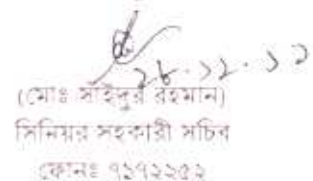 ২৬.১২.১২
(মোঃ সাইদুর রহমান)
সিনিয়র সহকারী সচিব
ফোনঃ ৭১৭২২৫২